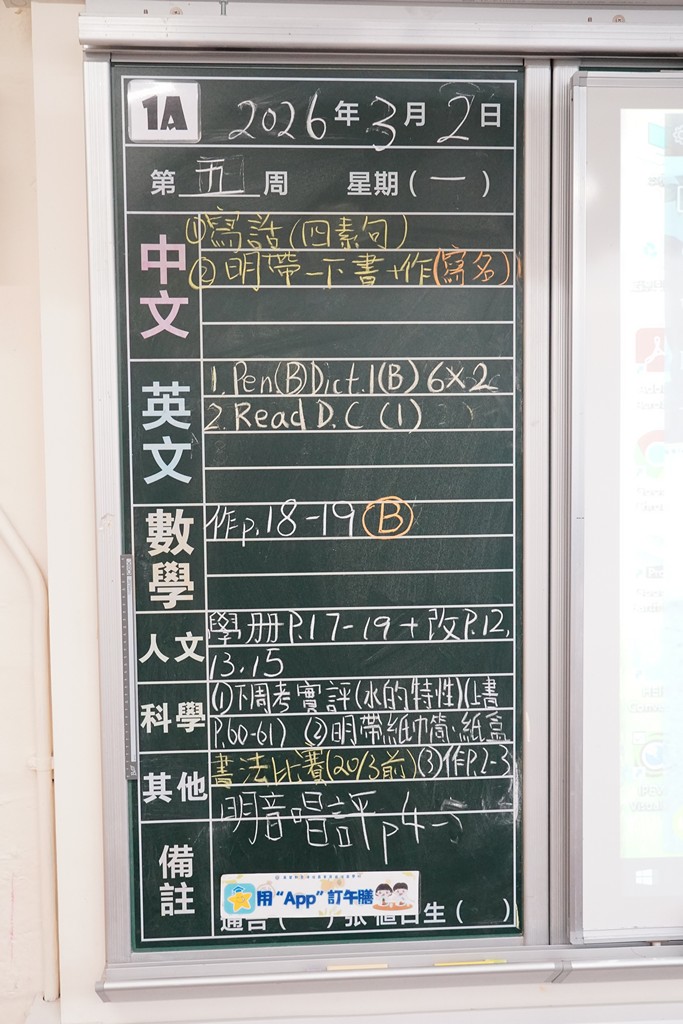 1A 2026年3月2日
第五周 星期(一)
中文
①寫話(四素句)
②明帶一下書+作(寫名)
英文
1. Pen(B)Dict.1(B) 6×2
2. Read D.C (1)
數學
作p.18-19 Ⓑ
人文
學册P.17-19+改P.12,
13.15
科學
(1)下周考實評(水的特性)(上書
P.60-61) (2)明帶紙巾筒、紙盒
其他
書法比賽(20/3前)(3)作P.2-3
明音唱評p4-5
備註
用“App”訂午膳
值日生( )